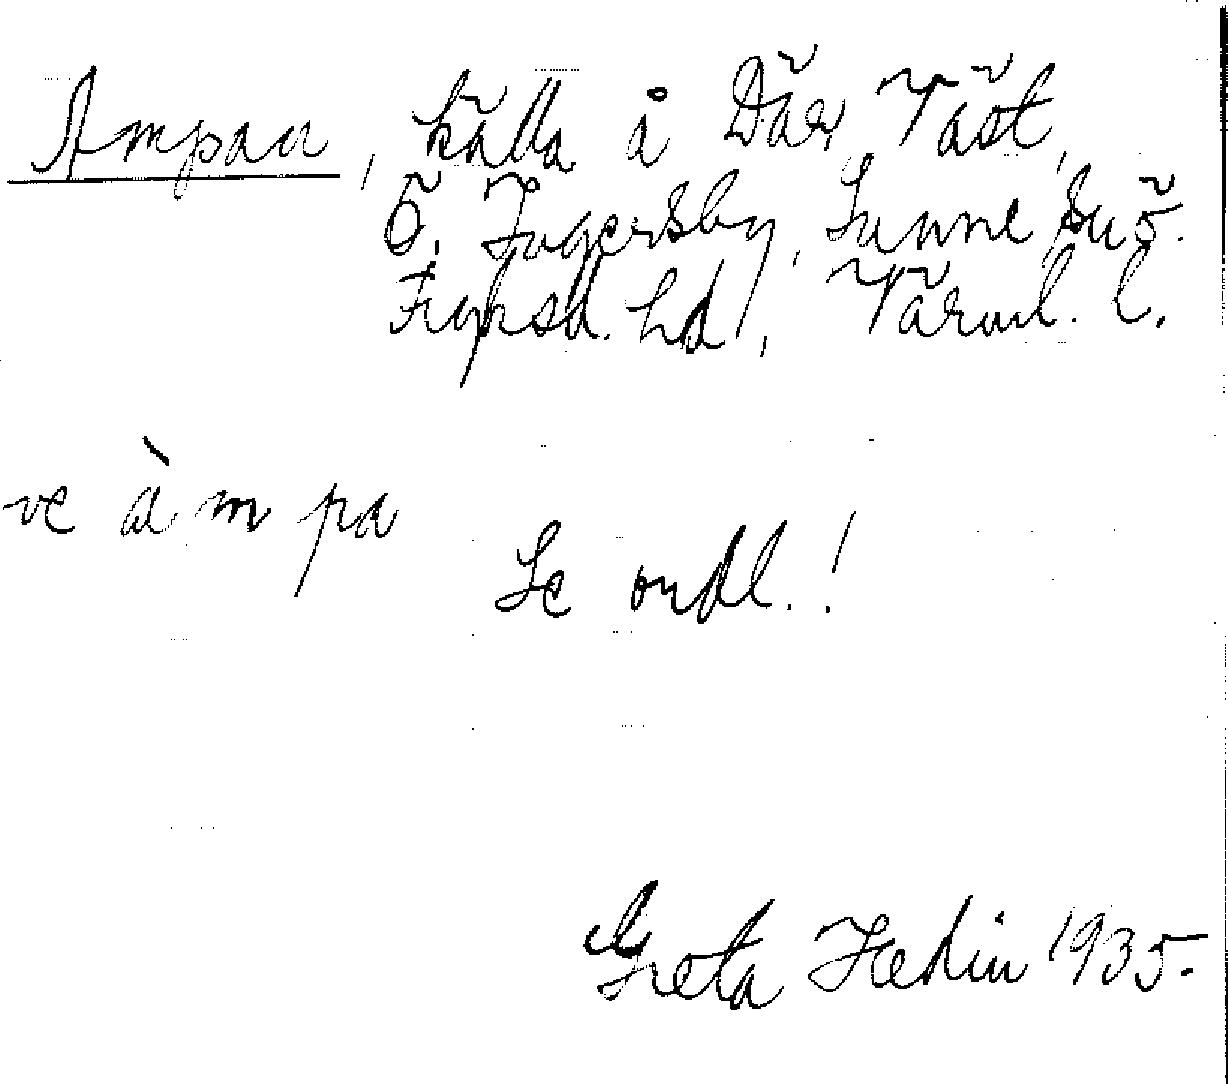 Ampan, källa å Där Väst,
Ö. Ingersby, Sunne su͞o.
Fryksd. hd, Värml. l.
ve àmpa
Se ordl.!
Greta Hedin 1935.